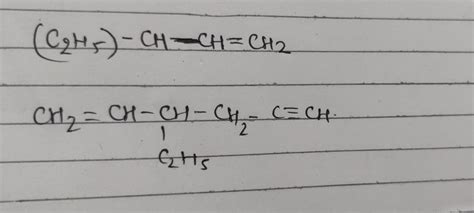 (C2H5)-CH-CH=CH2
CH2=CH-CH-CH2-C≡CH.
C2H5